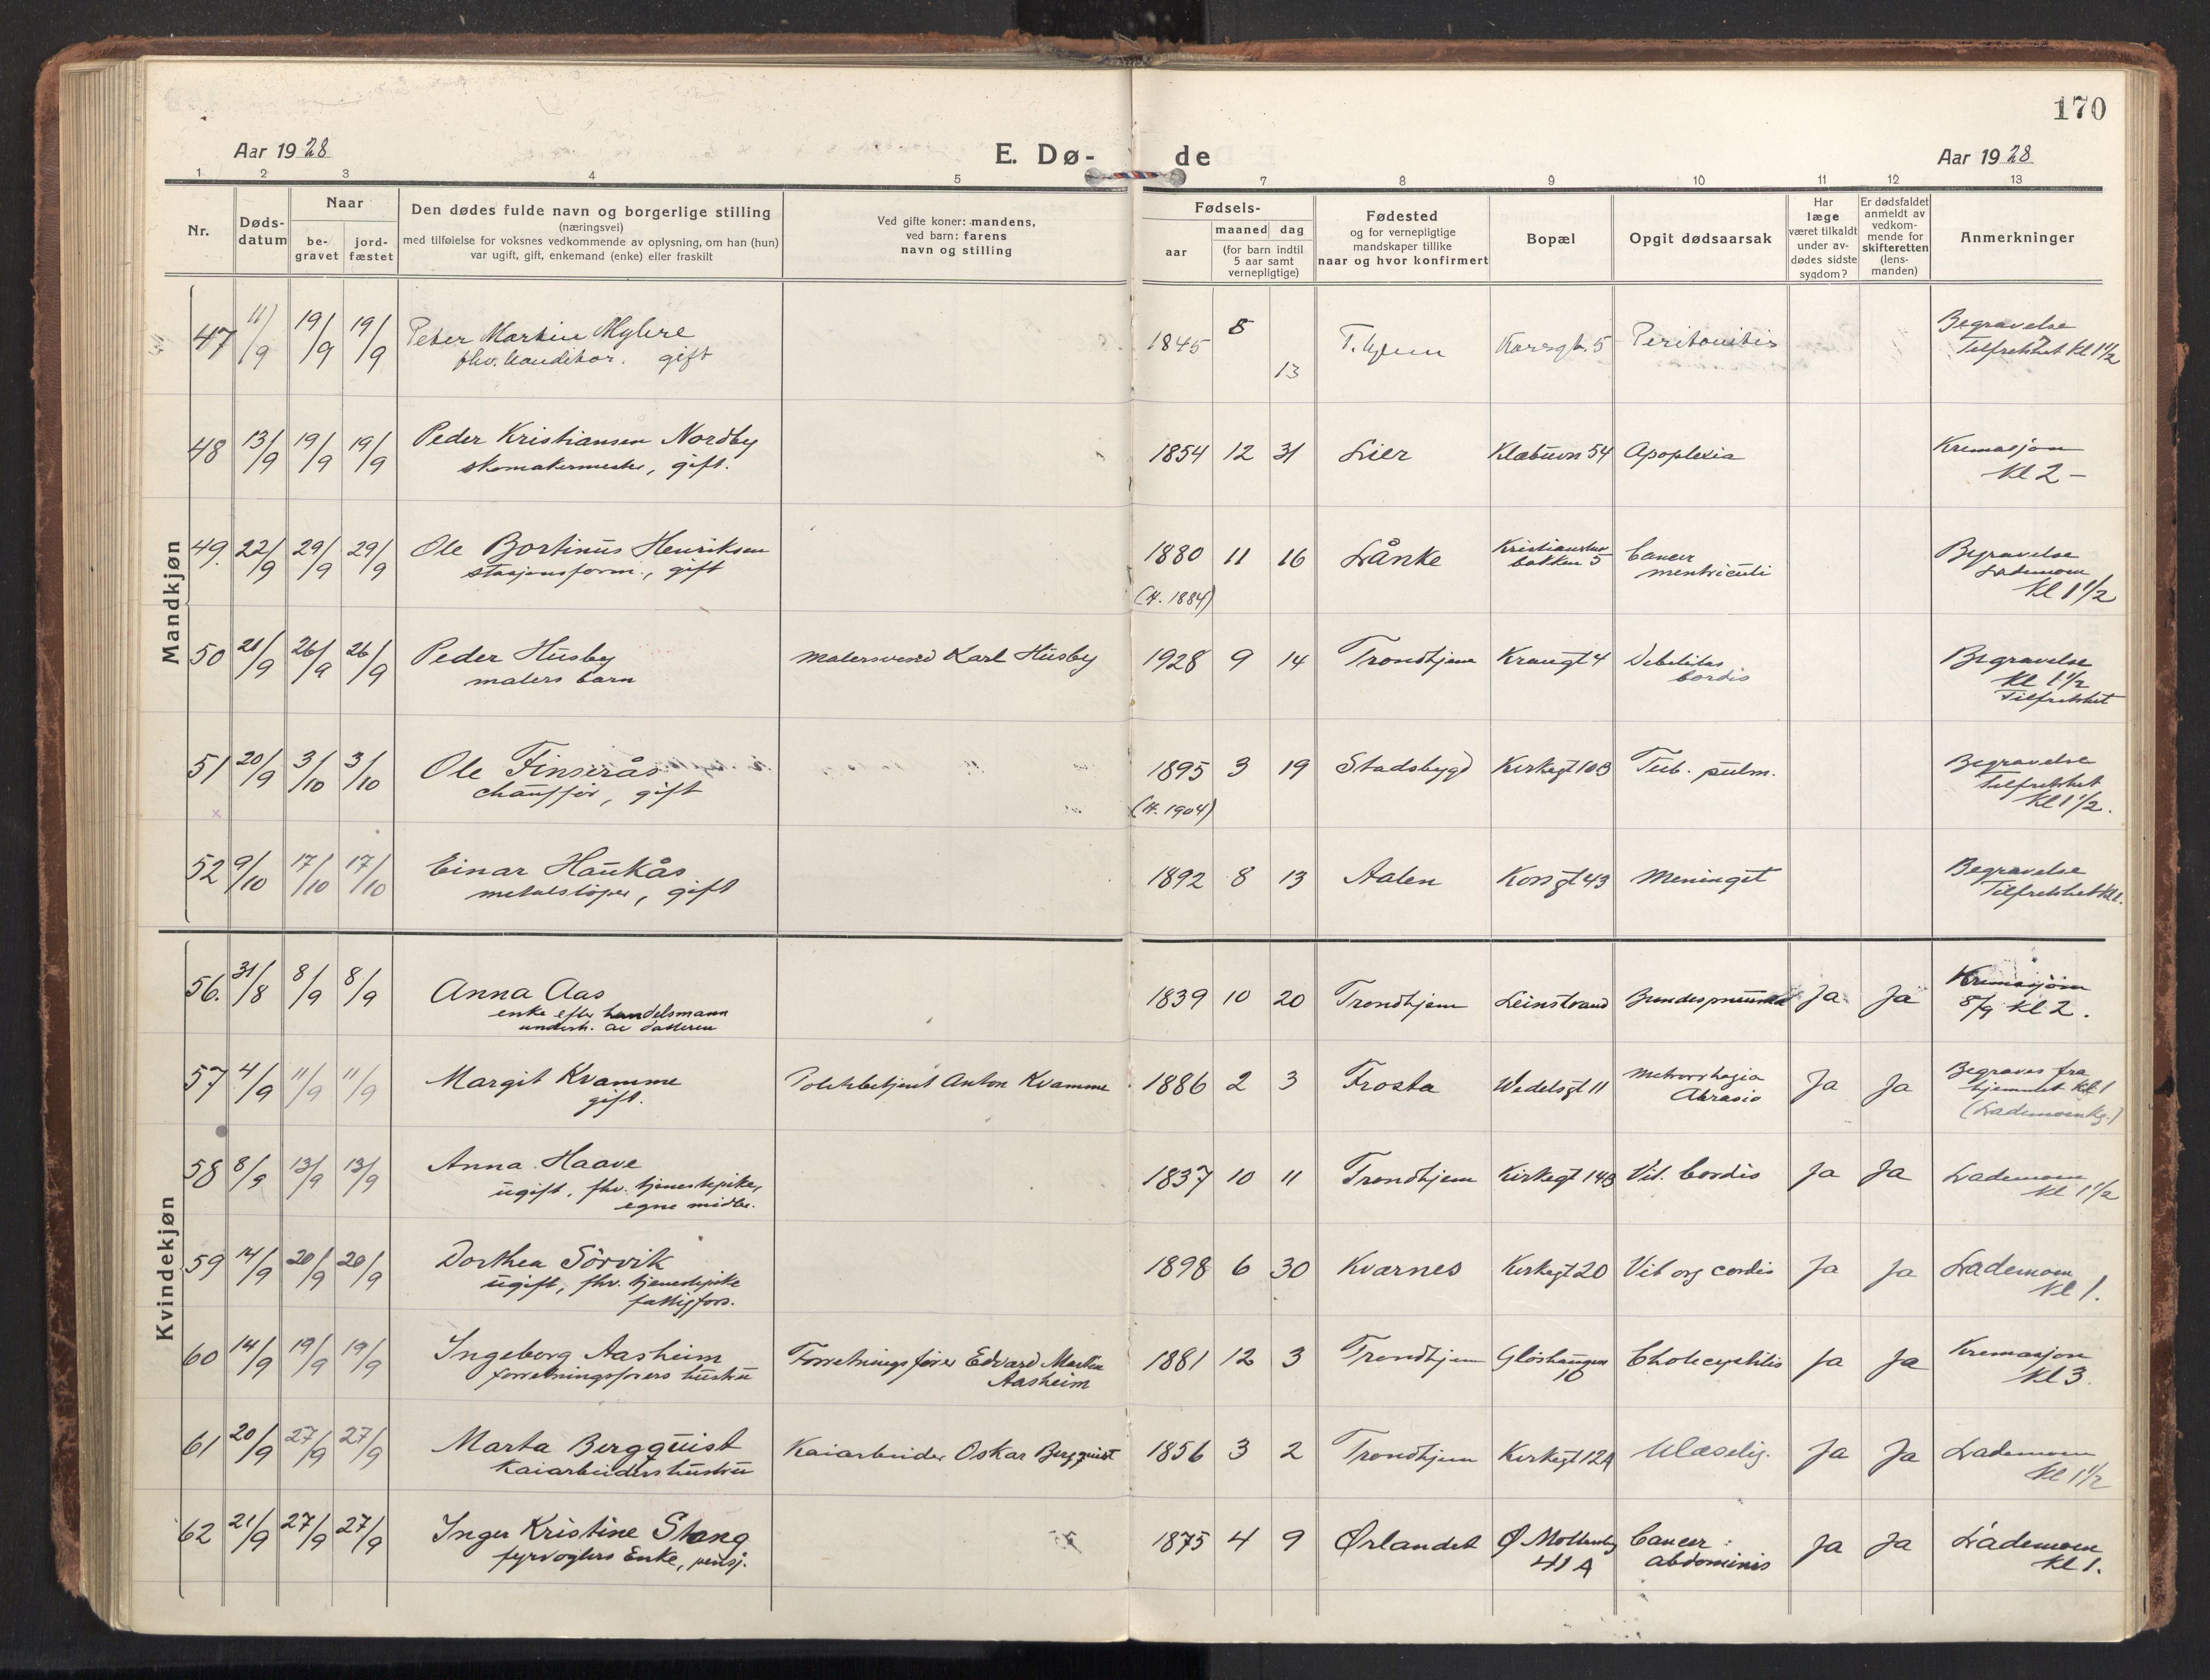 170
Aar 1928
E. Dø-de
Aar 1928
1 2 3 4 5 7 8 9 10 11 12 13
Nr.
Døds-
datum
Naar
be-
gravet
jord-
fæstet
Den dødes fulde navn og borgerlige stilling
(næringsvei)
med tilføielse for voksnes vedkommende av oplysning, om han (hun)
var ugift, gift, enkemand (enke) eller fraskilt
Ved gifte koner: mandens,
ved barn: farens
navn og stilling
Fødsels-
aar
maaned dag
(for barn indtil
5 aar samt
vernepligtige)
Fødested
og for vernepligtige
mandskaper tillike
naar og hvor konfirmert
Bopæl
Opgit dødsaarsak
Har
læge
været tilkaldt
under av-
dødes sidste
sygdom?
Er dødsfaldet
anmeldt av
vedkom-
mende for
skifteretten
(lens-
manden)
Anmerkninger
Mandkjøn
47 11/9 19/9 19/9 Peter Martin 1845 5 13 T.hjem 5 Peritonitis Begravelse
fhv. konditor. gift Tilfredshet Kl 1 1/2
48 13/9 19/9 19/9 Peder Kristiansen Nordby 1854 12 31 Lier Klæbuvn 54 Apoplexia Kremasjon
skomakermester, gift. Kl 2 -
49. 22/9 29/9 29/9 Ole Bortinus Henriksen 1880 11 16 Lånke Cancer Begravelse
stasjonsform., gift bakken 5 mentriculi Lademoen
(H. 1884) Kl 1 1/2
50 21/9 26/9 26/9 Peder Husby malersvend Karl Husby 1928 9 14 Trondhjem 4 Debilitas Begravelse
malers barn cordis Kl 1 1/2
Tilfredshet
51 20/9 3/10 3/10 Ole Finserås 1895 3 19 Stadsbygd Kirkegt 10B Tub. pulm. Begravelse
chauffør, gift Tilfredshet
(H. 1904) Kl 1 1/2.
52 9/10 17/10 17/10 Einar Haukås 1892 8 13 Aalen Korsgt 43 Meningit Begravelse
metalstøper, gift Tilfredshet Kl 1.
Kvindekjøn
56. 31/8 8/9 8/9 Anna Aas 1839 10 20 Trondhjem Leinstrand Ja Ja Kremasjon
enke efter handelsmann 8/9 Kl 2.
underh. av datteren
57 4/9 11/9 11/9 Margit Kvamme Politibetjent Anton Kvamme 1886 2 3 Frosta Wedelsgt 11 Metrorrhagia Ja Ja Begraves fra
gift. Abrasio hjemmet Kl 1
(Lademoen Kg.)
58 8/9 13/9 13/9 Anna Haave 1837 10 11 Trondhjem Kirkegt 14B Vit. Cordis Ja Ja Lademoen
ugift, fhv. tjenestepike, Kl 1 1/2
egne midler.
59 14/9 20/9 20/9 Dorthea Sørvik 1898 6 30 Kvarnes Kirkegt 20 Vit org cordis Ja Ja Lademoen
ugift, fhv. tjenestepike Kl 1.
fattigfors.
60 14/9 19/9 19/9 Ingeborg Aasheim Forretningsfører Edvard Martin 1881 12 3 Trondhjem Gløshaugen Cholecystitis Ja Ja Kremasjon
forretningsførers hustru Aasheim 10 Kl 3.
61 20/9 27/9 27/9 Marta Bergquist Kaiarbeider Oskar Bergquist 1856 3 2 Trondhjem Kirkegt 12A Ulæselig. Ja Ja Lademoen
Kaiarbeiders hustru Kl 1 1/2
62 21/9 27/9 27/9 Inger Kristine Stang 1875 4 9 Ørlandet Ø Mollenbg Cancer Ja Ja Lademoen
fyrvogters Enke, pensj. 41 A abdominis Kl 1.